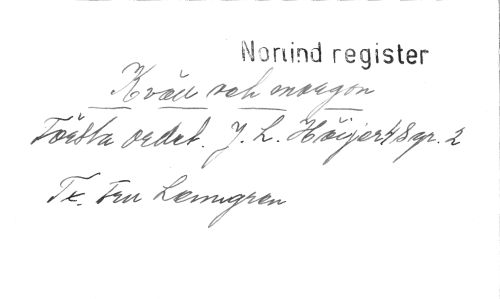 Norlind register
Kväll och morgon
Första ordet. J. L. Höijer 4 Sgr. 2
Tx. Fru Lenngren